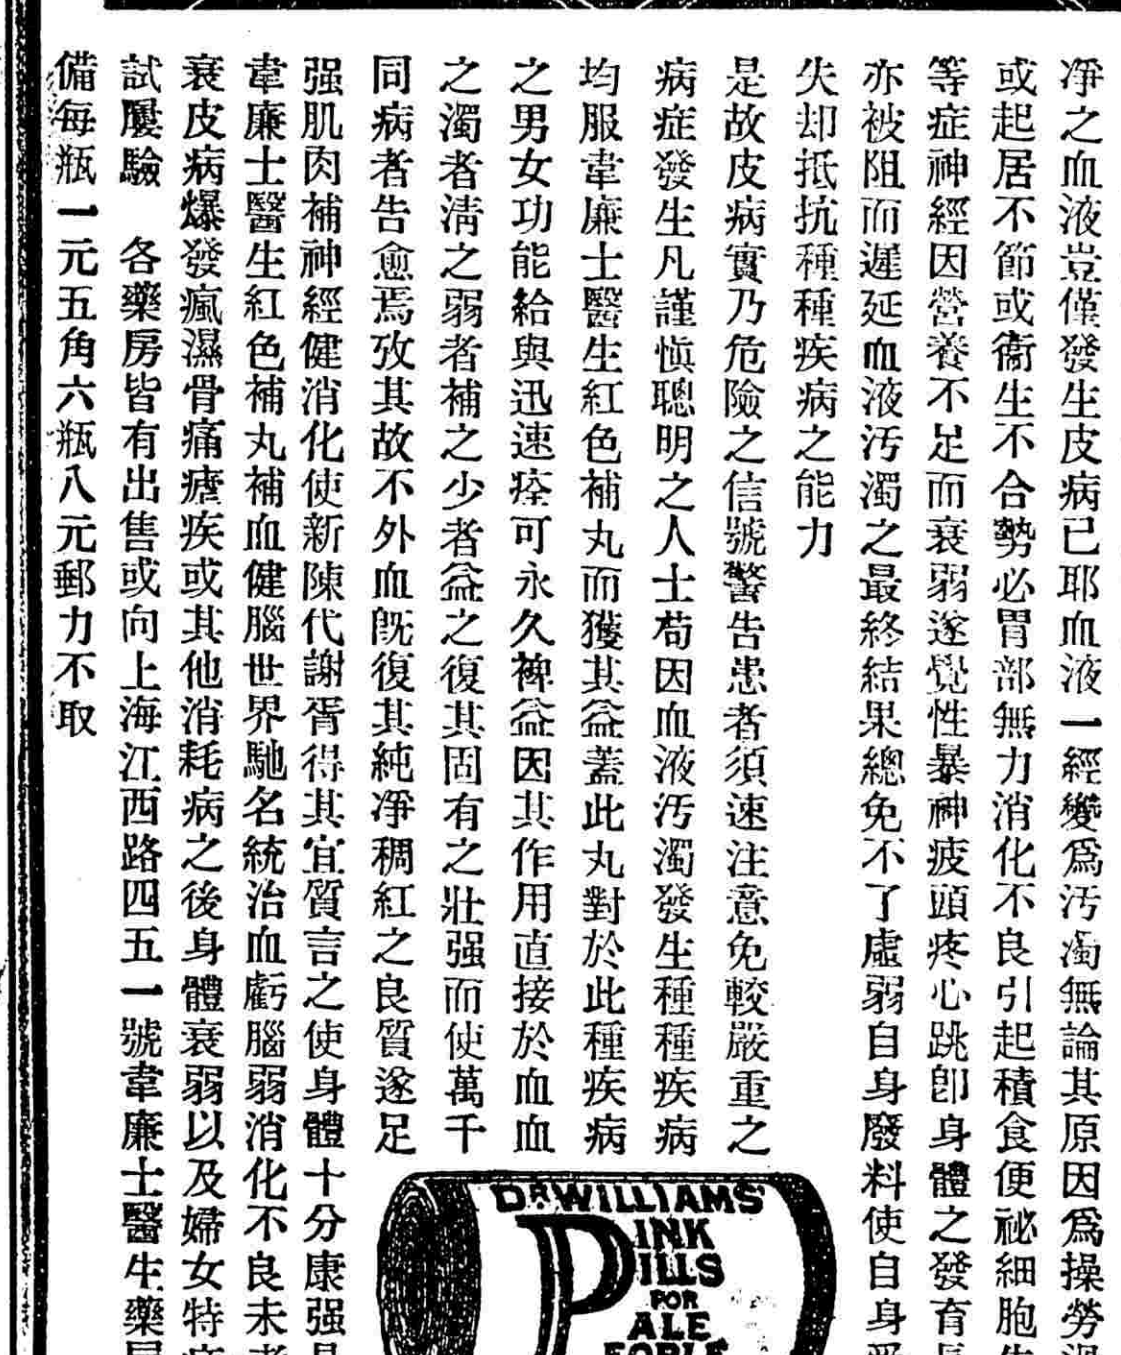 凈之血液豈僅發生皮病已耶血液一經變爲污濁無論其原因爲操勞
或起居不節或衞生不合勢必胃部無力消化不良引起積食便祕細胞
等症神經因營養不足而衰弱遂覺性暴神疲頭疼心跳卽身體之發育
亦被阻而遲延血液汚濁之最終結果總免不了虛弱自身廢料使自身
失却抵抗種種疾病之能力
是故皮病實乃危險之信號警告患者須速注意免較嚴重之
病症發生凡謹愼聰明之人士苟因血液汚濁發生種種疾病
均服韋廉士醫生紅色補丸而獲其益蓋此丸對於此種疾病
之男女功能給與迅速痊可永久裨益因其作用直接於血血
之濁者淸之弱者補之少者益之復其固有之壯强而使萬千
同病者告愈焉攷其故不外血旣復其純凈稠紅之良質遂足
强肌肉補神經健消化使新陳代謝胥得其宜質言之使身體十分康强
韋廉士醫生紅色補丸補血健腦世界馳名統治血虧腦弱消化不良未
衰皮病爆發瘋濕骨痛瘧疾或其他消耗病之後身體衰弱以及婦女特
試屢驗　各藥房皆有出售或向上海江西路四五一號韋廉士醫生藥
備每瓶一元五角六瓶八元郵力不取
DR WILLIAMS'
PINK
PILLS
FOR
PALE
PEOPLE